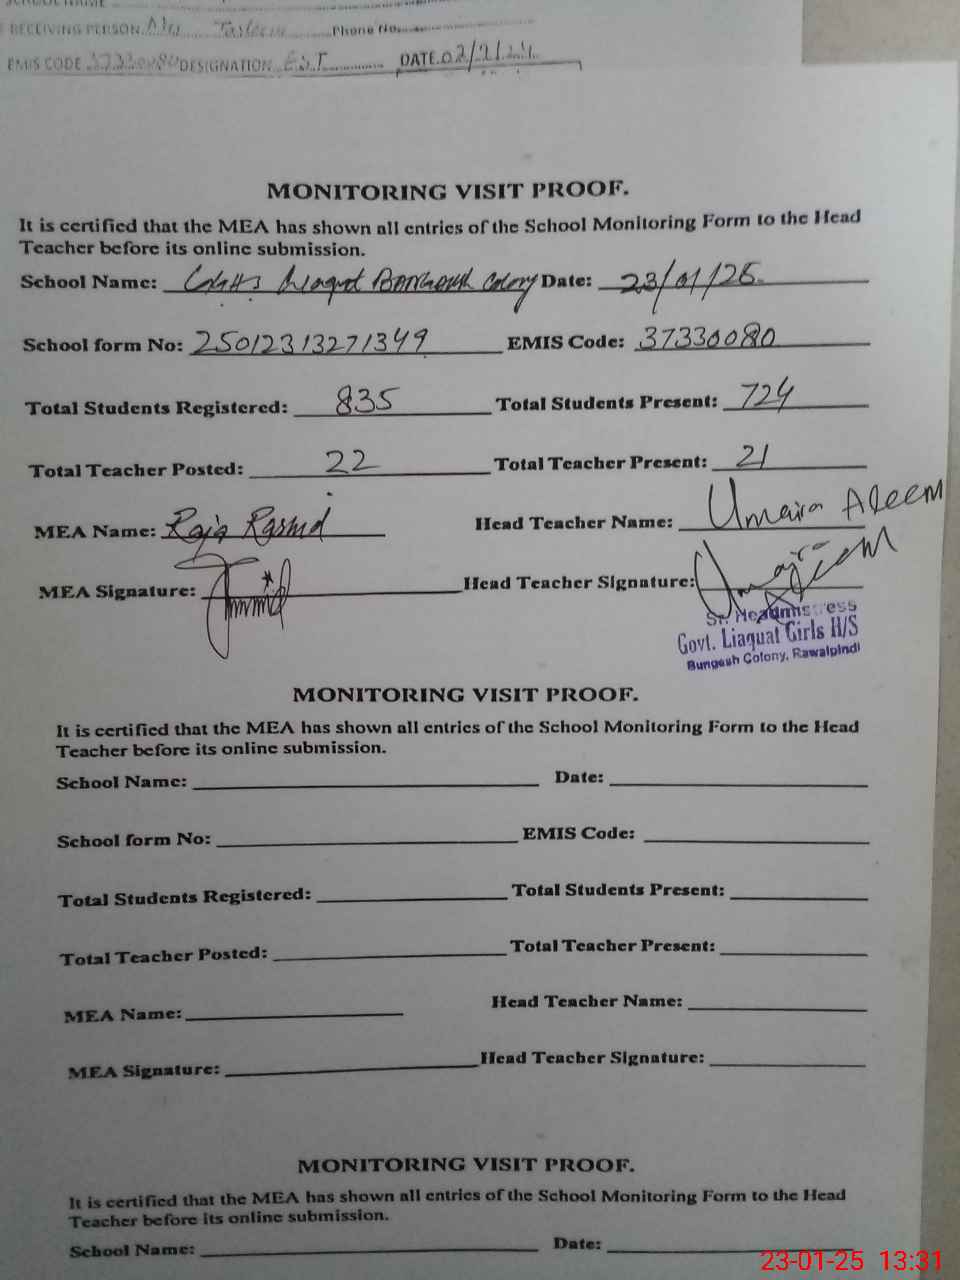 SCHOOL NAME
RECEIVING PERSON Phone No.
EMIS CODE 37330080 DESIGNATION E.S.T DATE
MONITORING VISIT PROOF.
It is certified that the MEA has shown all entries of the School Monitoring Form to the Head
Teacher before its online submission.
School Name: Liaquat Colony Date: 23/01/25
School form No: 25012313271349 EMIS Code: 37330080
Total Students Registered: 835 Total Students Present: 724
Total Teacher Posted: 22 Total Teacher Present: 21
MEA Name: Raja Rashid Head Teacher Name: Umaira Aleem
MEA Signature: Head Teacher Signature: Umaira Aleem
Sr. Headmistress
Govt. Liaquat Girls H/S
Bungash Colony, Rawalpindi
MONITORING VISIT PROOF.
It is certified that the MEA has shown all entries of the School Monitoring Form to the Head
Teacher before its online submission.
School Name: Date:
School form No: EMIS Code:
Total Students Registered: Total Students Present:
Total Teacher Posted: Total Teacher Present:
MEA Name: Head Teacher Name:
MEA Signature: Head Teacher Signature:
MONITORING VISIT PROOF.
It is certified that the MEA has shown all entries of the School Monitoring Form to the Head
Teacher before its online submission.
School Name: Date:
23-01-25 13:31